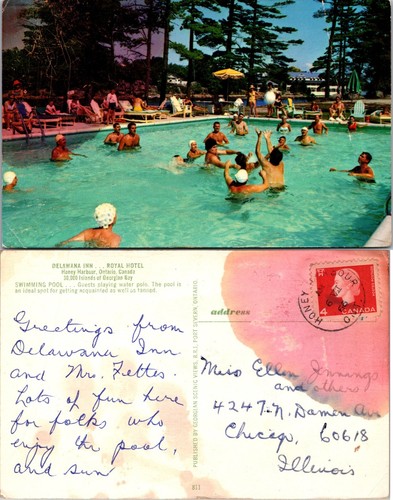 DELAWANA INN . . . ROYAL HOTEL
Honey Harbour, Ontario, Canada
30,000 Islands of Georgian Bay
SWIMMING POOL . . . Guests playing water polo. The pool is
an ideal spot for getting acquainted as well as tanned.
Greetings from
Delawana Inn
and Mrs. Fettes.
Lots of fun here
for folks who
enjoy the pool,
and sun
PUBLISHED BY GEORGIAN SCENIC VIEWS, R.R.1, PORT SEVERN, ONTARIO
811
address
HONEY HARBOUR
ONT.
4
CANADA
Miss Ellen Jennings
and others
4247-N. Damen Av
Chicago, 60618
Illinois